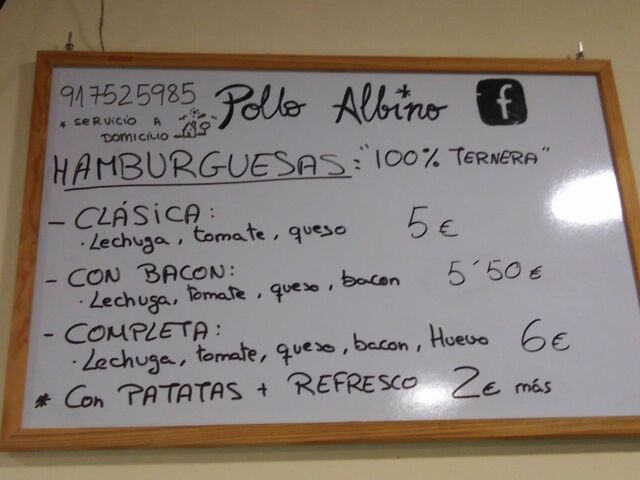 917525985 Pollo Albino f
* SERVICIO A
DOMICILIO
HAMBURGUESAS: "100% TERNERA"
- CLÁSICA:
· Lechuga, tomate, queso 5€
- CON BACON:
· Lechuga, tomate, queso, bacon 5'50€
- COMPLETA:
· Lechuga, tomate, queso, bacon, Huevo 6€
* Con PATATAS + REFRESCO 2€ más